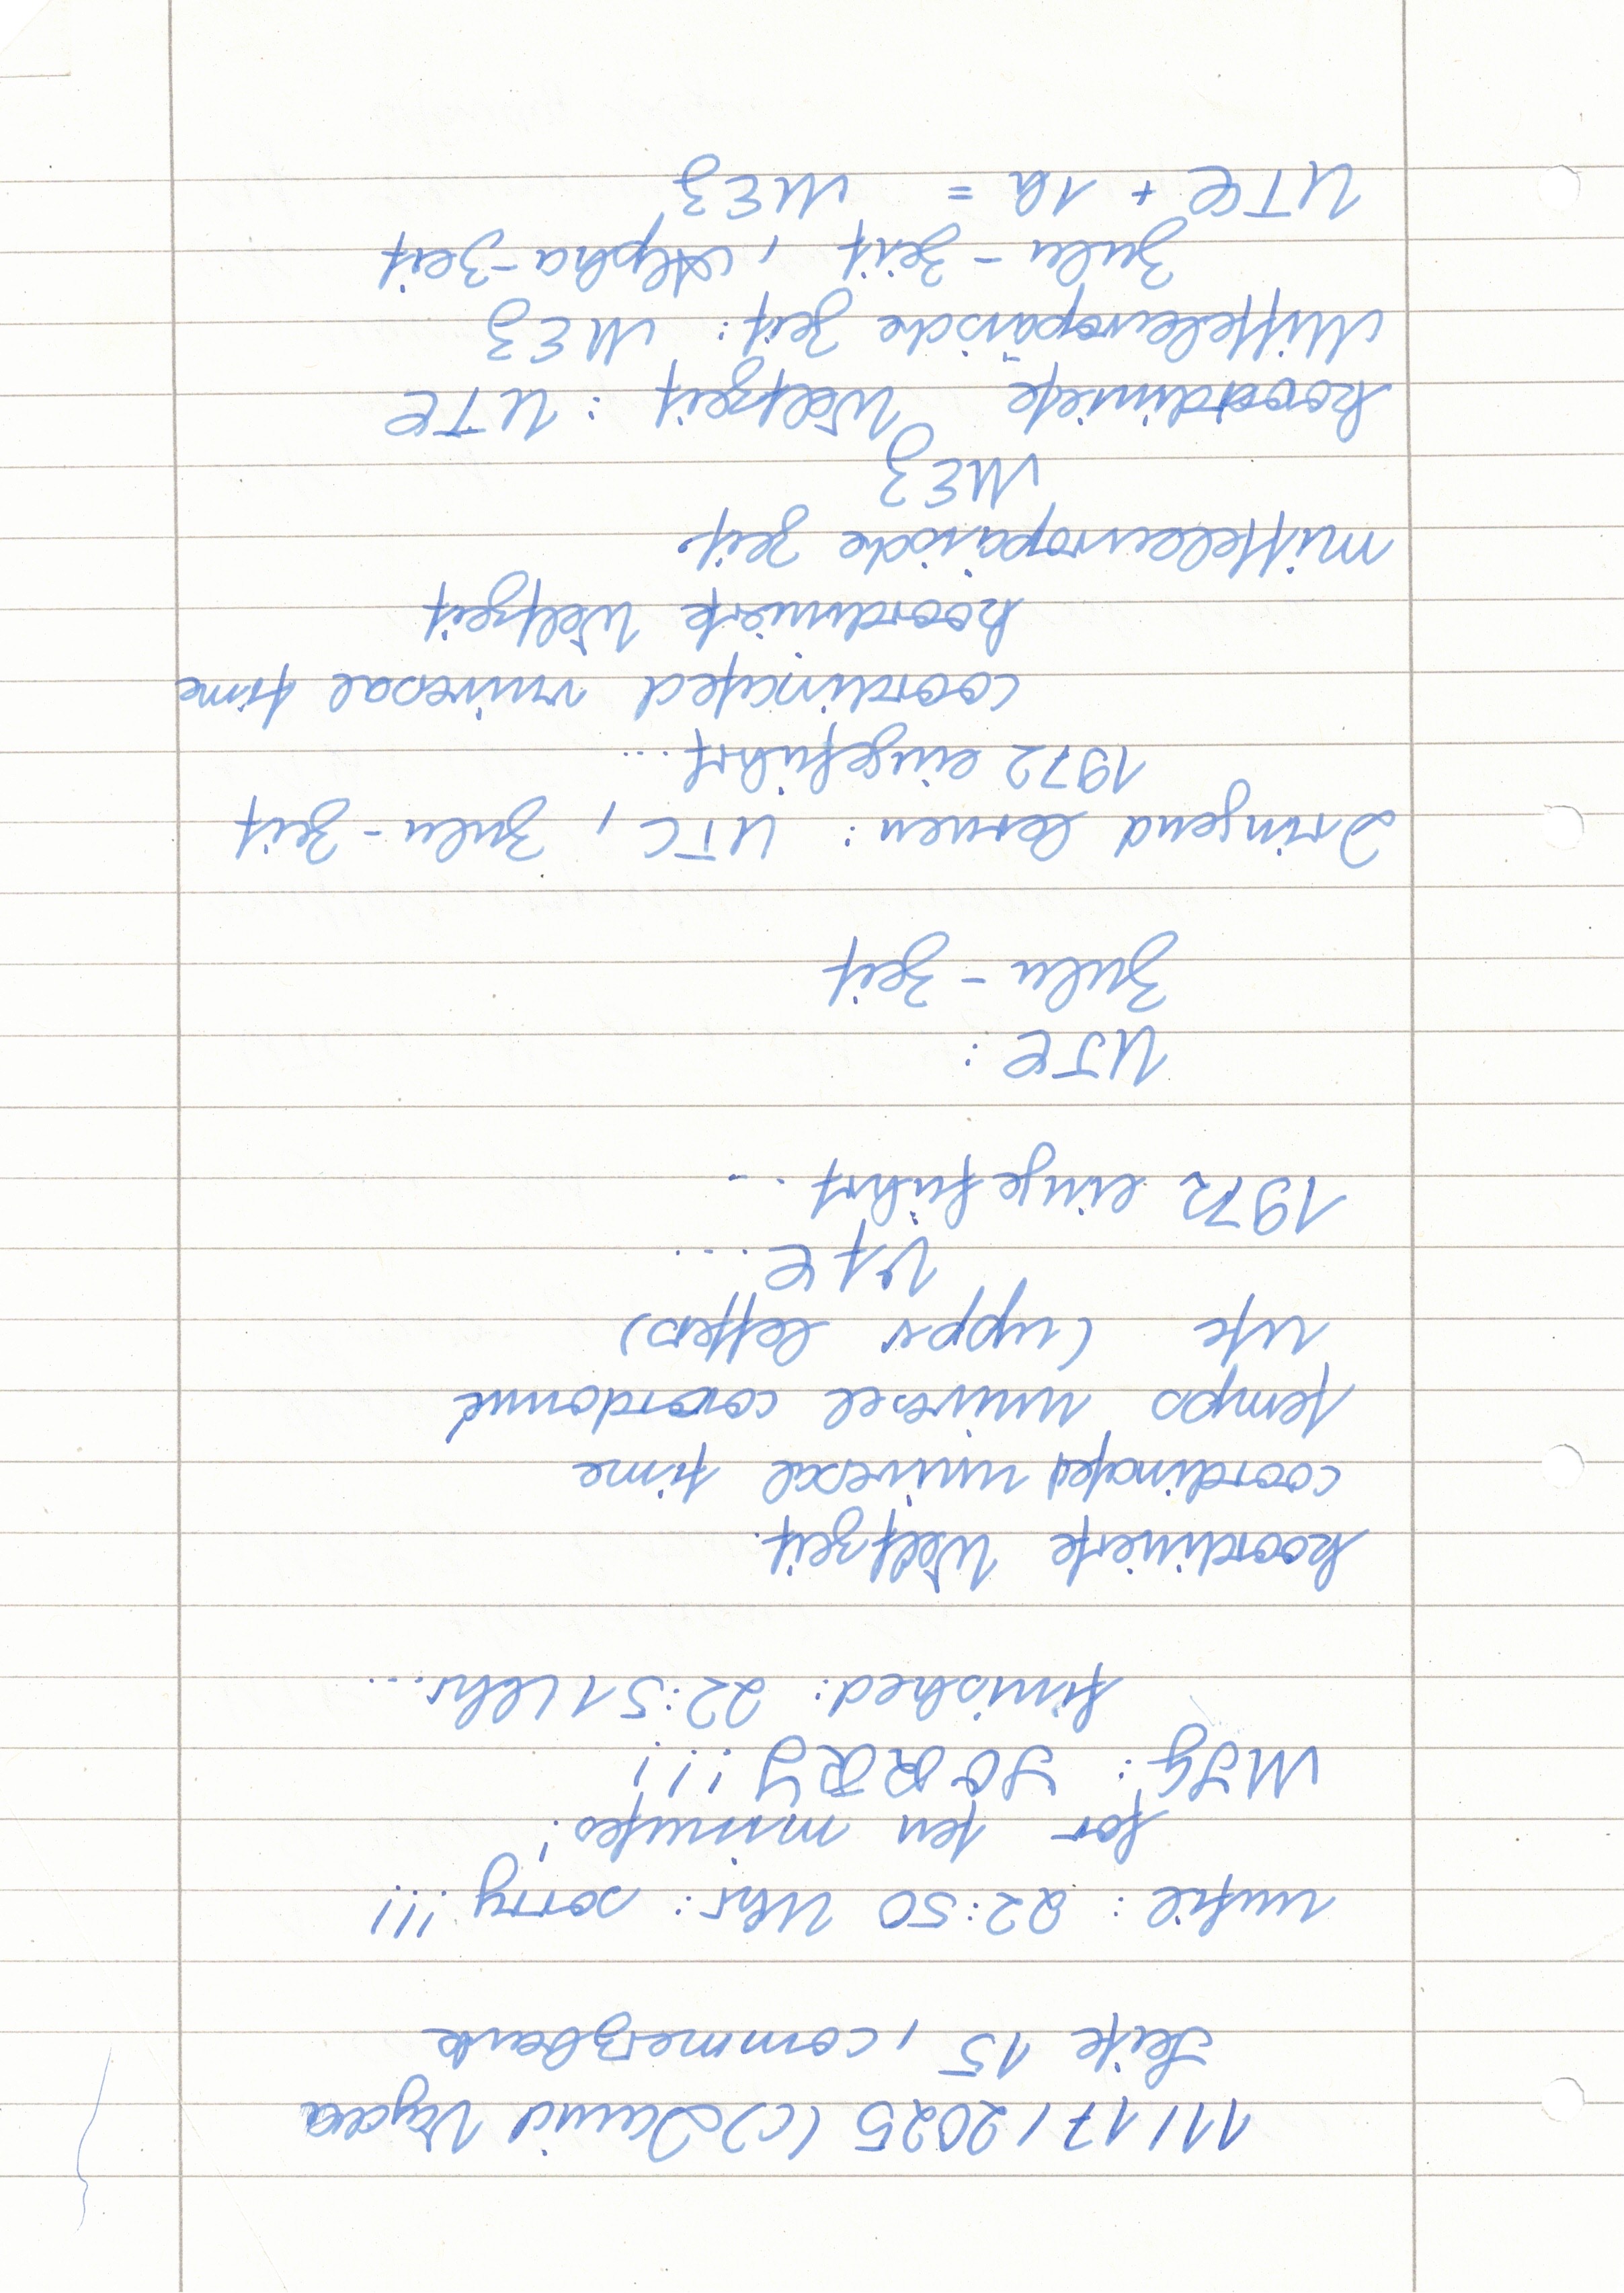 11/17/2025 (c) David Vajda
Seite 15, commerzbank
until: 22:50 Uhr: sorry!!!
for ten minutes!
MSG: SORRY!!!
finished: 22:51 Uhr...
koordinierte Weltzeit
coordinated universal time
temps universel coordonné
utc (uppr letters)
UTC...
1972 eingeführt...
UTC:
Zulu-Zeit
Dringend lernen: UTC, Zulu-Zeit
1972 eingeführt...
coordinated universal time
koordinierte Weltzeit
mitteleuropäische Zeit
MEZ
koordinierte Weltzeit: UTC
Mitteleuropäische Zeit: MEZ
Zulu-Zeit, Alpha-Zeit
UTC + 1h = MEZ